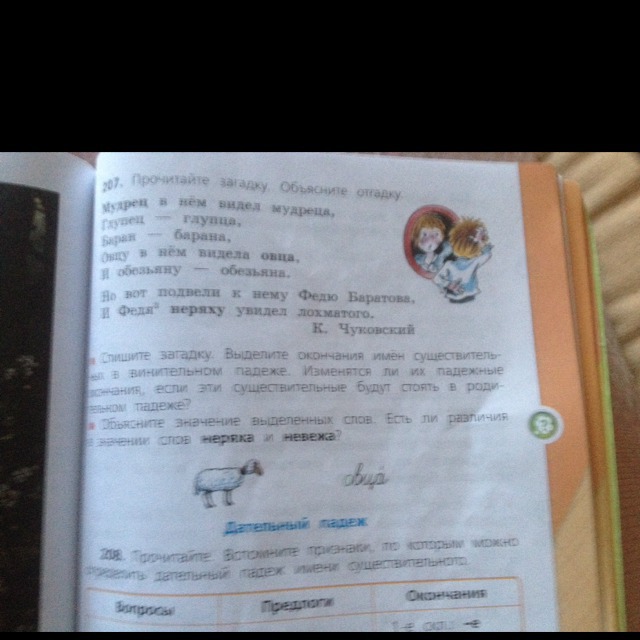 207. Прочитайте загадку. Объясните отгадку.
Мудрец в нём видел мудреца,
Глупец — глупца,
Баран — барана,
Овцу в нём видела овца,
И обезьяну — обезьяна.
Но вот подвели к нему Федю Баратова,
И Федя неряху увидел лохматого.
К. Чуковский
Спишите загадку. Выделите окончания имён существитель-
ных в винительном падеже. Изменятся ли их падежные
окончания, если эти существительные будут стоять в роди-
тельном падеже?
Объясните значение выделенных слов. Есть ли различия
в значении слов неряха и невежа?
овца
Дательный падеж
208. Прочитайте. Вспомните признаки, по которым можно
определить дательный падеж имени существительного.
Вопросы Предлоги Окончания